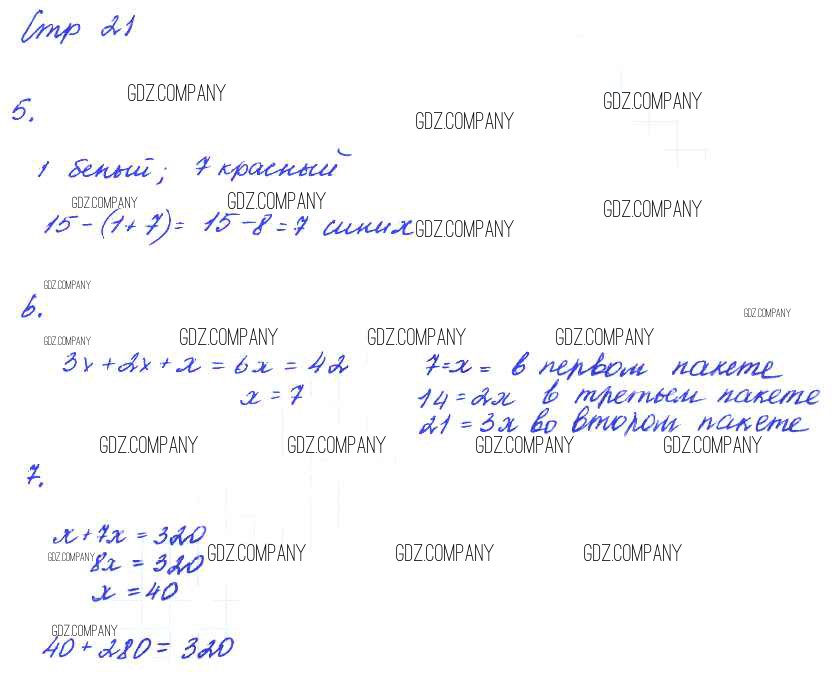 Стр 21
GDZ.COMPANY GDZ.COMPANY GDZ.COMPANY
5.
1 белый; 7 красный
GDZ.COMPANY GDZ.COMPANY GDZ.COMPANY
15-(1+7)= 15-8=7 синих GDZ.COMPANY
GDZ.COMPANY
6. GDZ.COMPANY
GDZ.COMPANY GDZ.COMPANY GDZ.COMPANY GDZ.COMPANY
3x+2x+x=6x=42 7=x= в первом пакете
x=7 14=2x в третьем пакете
21=3x во втором пакете
GDZ.COMPANY GDZ.COMPANY GDZ.COMPANY GDZ.COMPANY
7.
x+7x=320
GDZ.COMPANY 8x=320 GDZ.COMPANY GDZ.COMPANY GDZ.COMPANY
x=40
GDZ.COMPANY
40+280=320